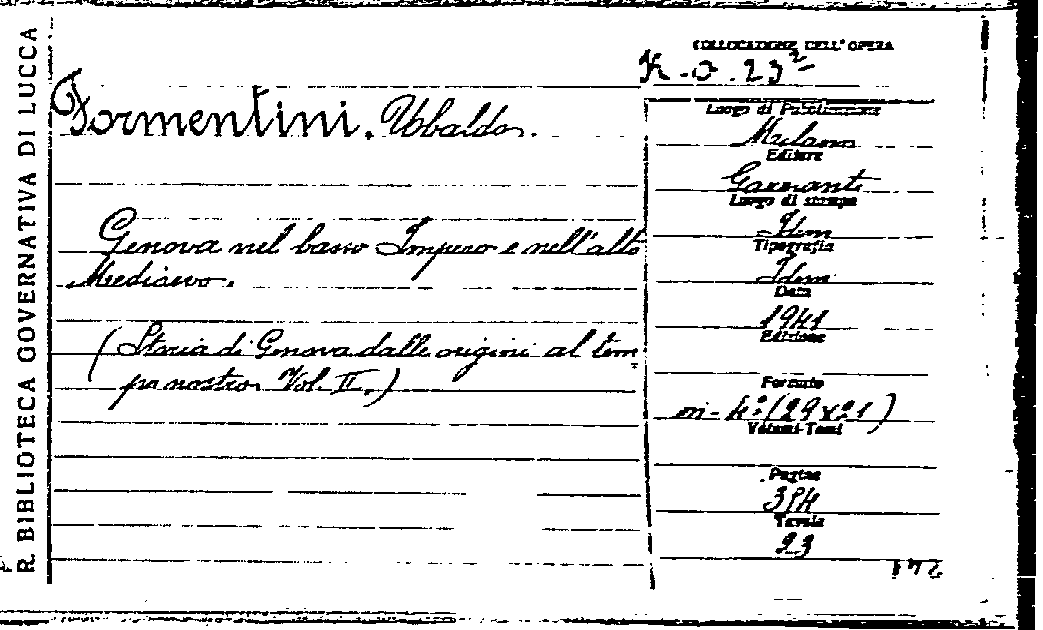 R. BIBLIOTECA GOVERNATIVA DI LUCCA
Formentini. Ubaldo.
Genova nel basso Impero e nell'alto
Medioevo.
(Storia di Genova dalle origini al tem
po nostro. Vol. II.)
COLLOCAZIONE DELL'OPERA
K.o.23²
Luogo di Pubblicazione
Milano
Editore
Garzanti
Luogo di stampa
Idem
Tipografia
Idem
Data
1941
Edizione
Formato
in-4º (29x21)
Volumi-Tomi
Pagine
Tavole
23